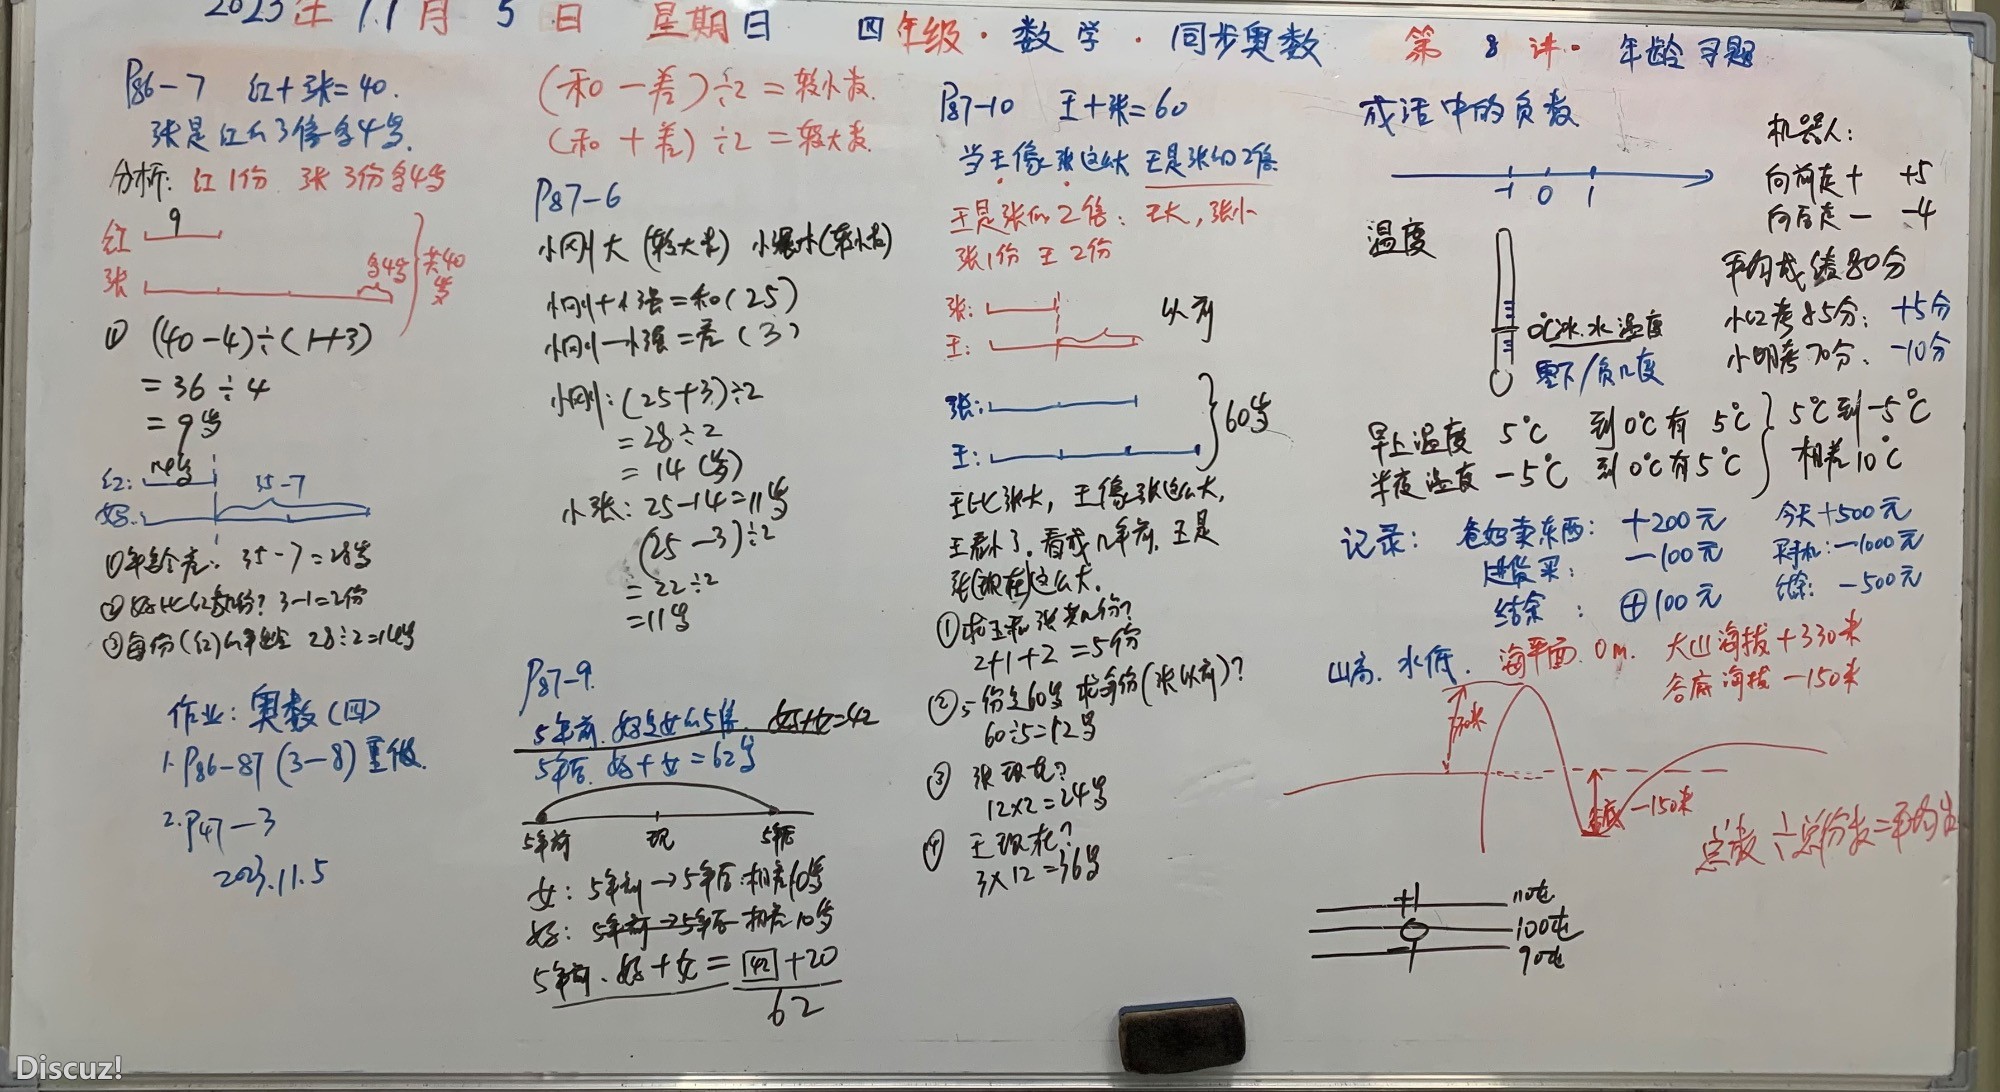 2023年11月5日 星期日 四年级·数学·同步奥数 第8讲·年龄习题
P86-7 红+张=40.
张是红的3倍多4岁.
分析: 红1份 张3份多4岁
9
红
张
多4岁
共40岁
① (40-4)÷(1+3)
=36÷4
=9岁
14岁
红:
妈:
35-7
①年龄差: 35-7=28岁
②妈比红多几份? 3-1=2份
③每份(红)的年龄 28÷2=14岁
作业: 奥数(四)
1.P86-87(3-8)重做.
2.P47-3
2023.11.5
(和-差)÷2=较小数.
(和+差)÷2=较大数.
P87-6
小刚大(较大数) 小强小(较小数)
小刚+小强=和(25)
小刚-小强=差(3)
小刚:(25+3)÷2
=28÷2
=14(岁)
小张:25-14=11岁
(25-3)÷2
=22÷2
=11岁
P87-9.
5年前.妈是女的5倍. 妈+女=42
5年后.妈+女=62岁
5年前 现 5年后
女: 5年前→5年后:相差10岁
妈: 5年前→5年后 相差10岁
5年前.妈+女=42+20
62
P87-10 王+张=60
当王像张这么大 王是张的2倍
王是张的2倍: 王大,张小
张1份 王2份
张:
王:
以前
张:
王:
60岁
王比张大, 王像张这么大,
王看小了.看成几年前.王是
张(现在)这么大.
①求王和张共几份?
2+1+2=5份
②5份是60岁 求每份(张以前)?
60÷5=12岁
③ 张现在?
12×2=24岁
④ 王现在?
3×12=36岁
成活中的负数
-1 0 1
温度
0℃冰.水温度
零下/负几度
机器人:
向前走+ +5
向后走- -4
平均成绩80分
小红考85分: +5分
小明考70分. -10分
早上温度 5℃ 到0℃有 5℃
半夜温度 -5℃ 到0℃有5℃
5℃到-5℃
相差10℃
记录: 爸妈卖东西: +200元
进货买: -100元
结余: ⊕100元
今天+500元
买手机:-1000元
结余: -500元
山高.水低. 海平面.0m.
大山海拔+330米
谷底海拔-150米
330米
谷底-150米
总数÷总份数=平均
110吨
100吨
90吨
Discuz!